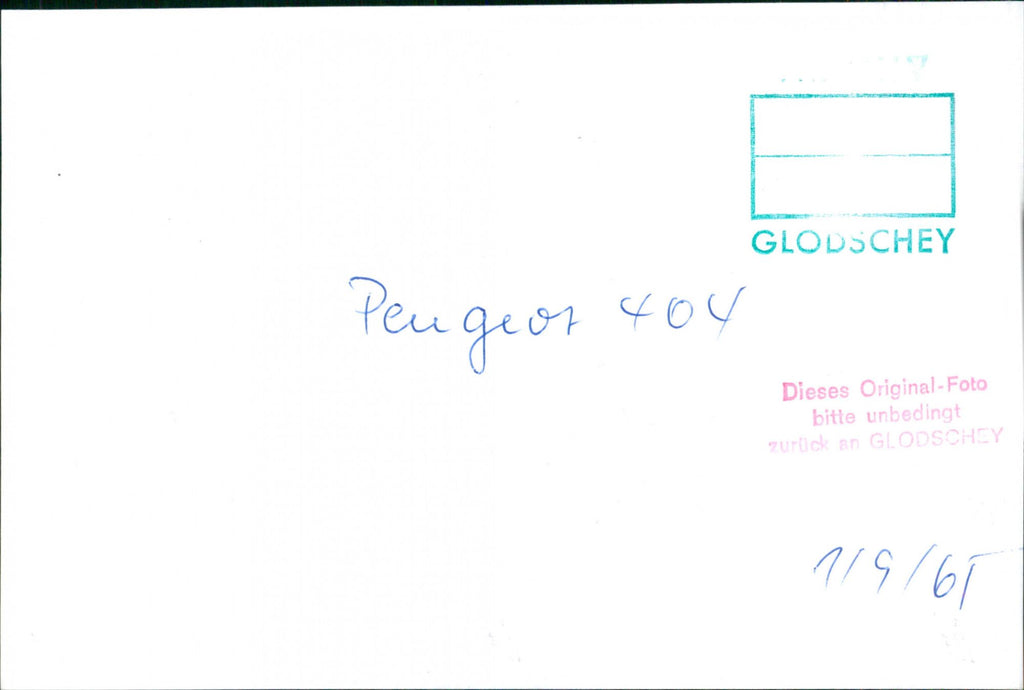 GLODSCHEY
Peugeot 404
Dieses Original-Foto
bitte unbedingt
zurück an GLODSCHEY
1/9/65